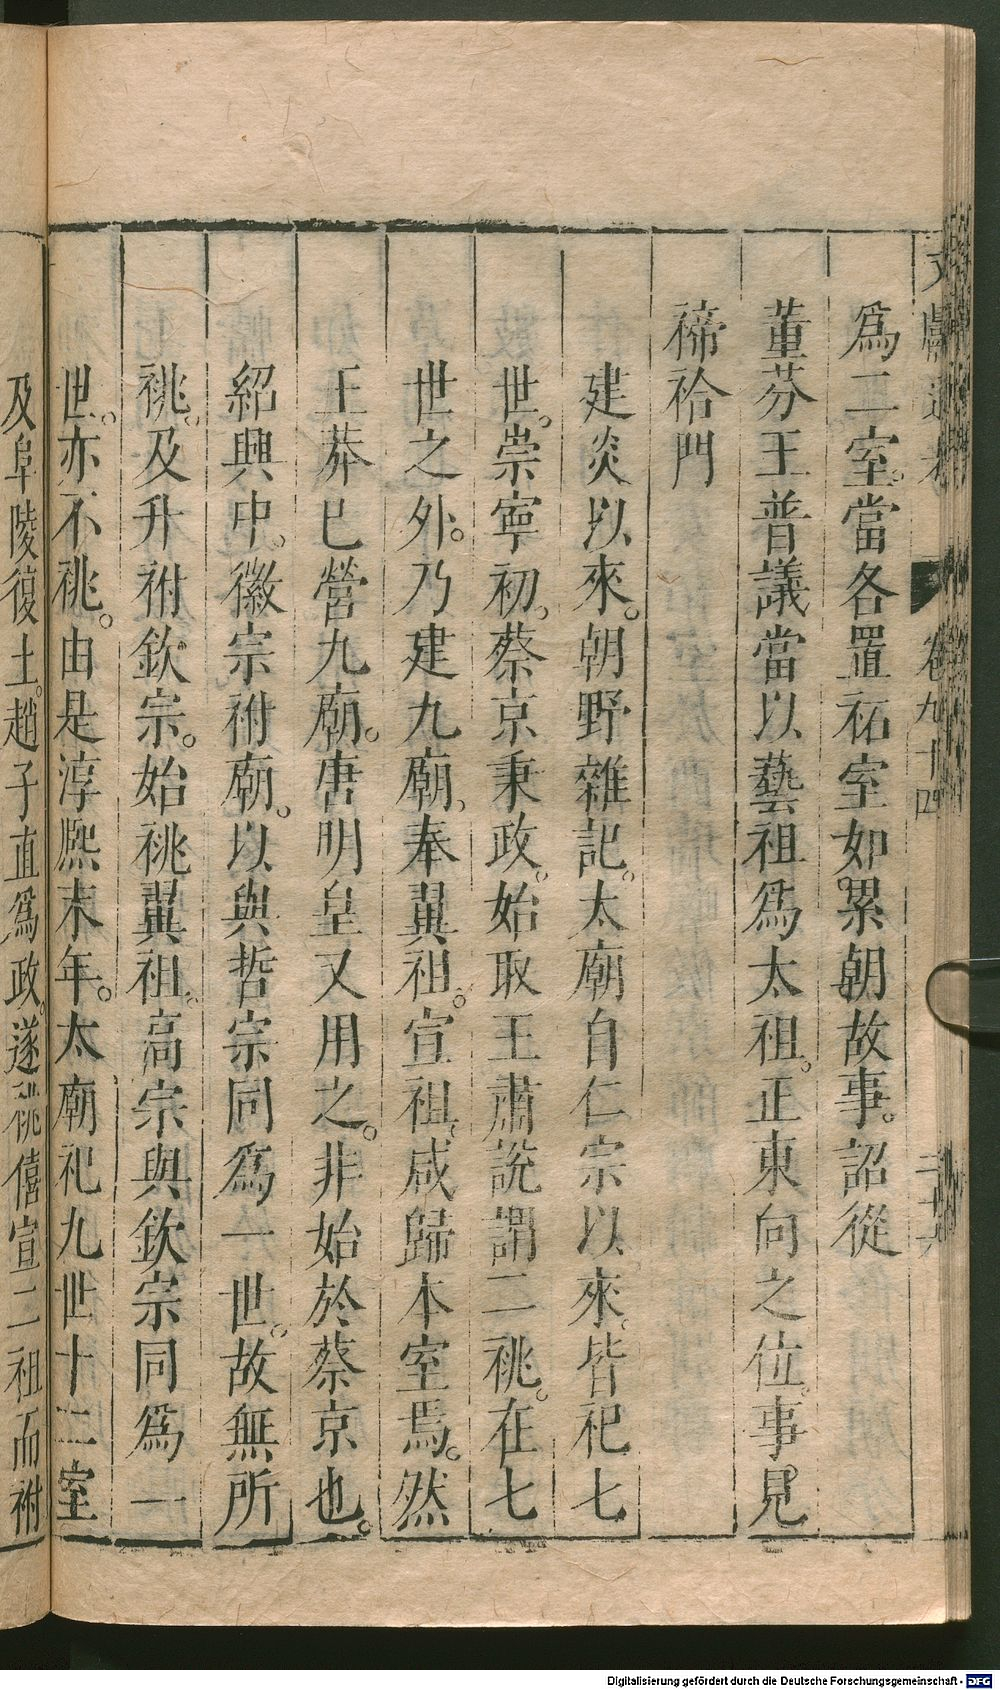 文獻通考 卷九十四
爲二室。當各置祏室如累朝故事。詔從
董芬王普議當以藝祖爲太祖。正東向之位。事見
禘祫門
建炎以來。朝野雜記。太廟自仁宗以來。皆祀七
世。崇寧初。蔡京秉政。始取王肅說謂二祧。在七
世之外。乃建九廟。奉翼祖。宣祖。咸歸本室焉。然
王莽已營九廟。唐明皇又用之。非始於蔡京也。
紹興中。徽宗祔廟。以與哲宗同爲一世。故無所
祧。及升祔欽宗。始祧翼祖。高宗與欽宗同爲一
世。亦不祧。由是淳熙末年。太廟祀九世十二室
及阜陵復土。趙子直爲政。遂祧僖宣二祖而祔
Digitalisierung gefördert durch die Deutsche Forschungsgemeinschaft - DFG